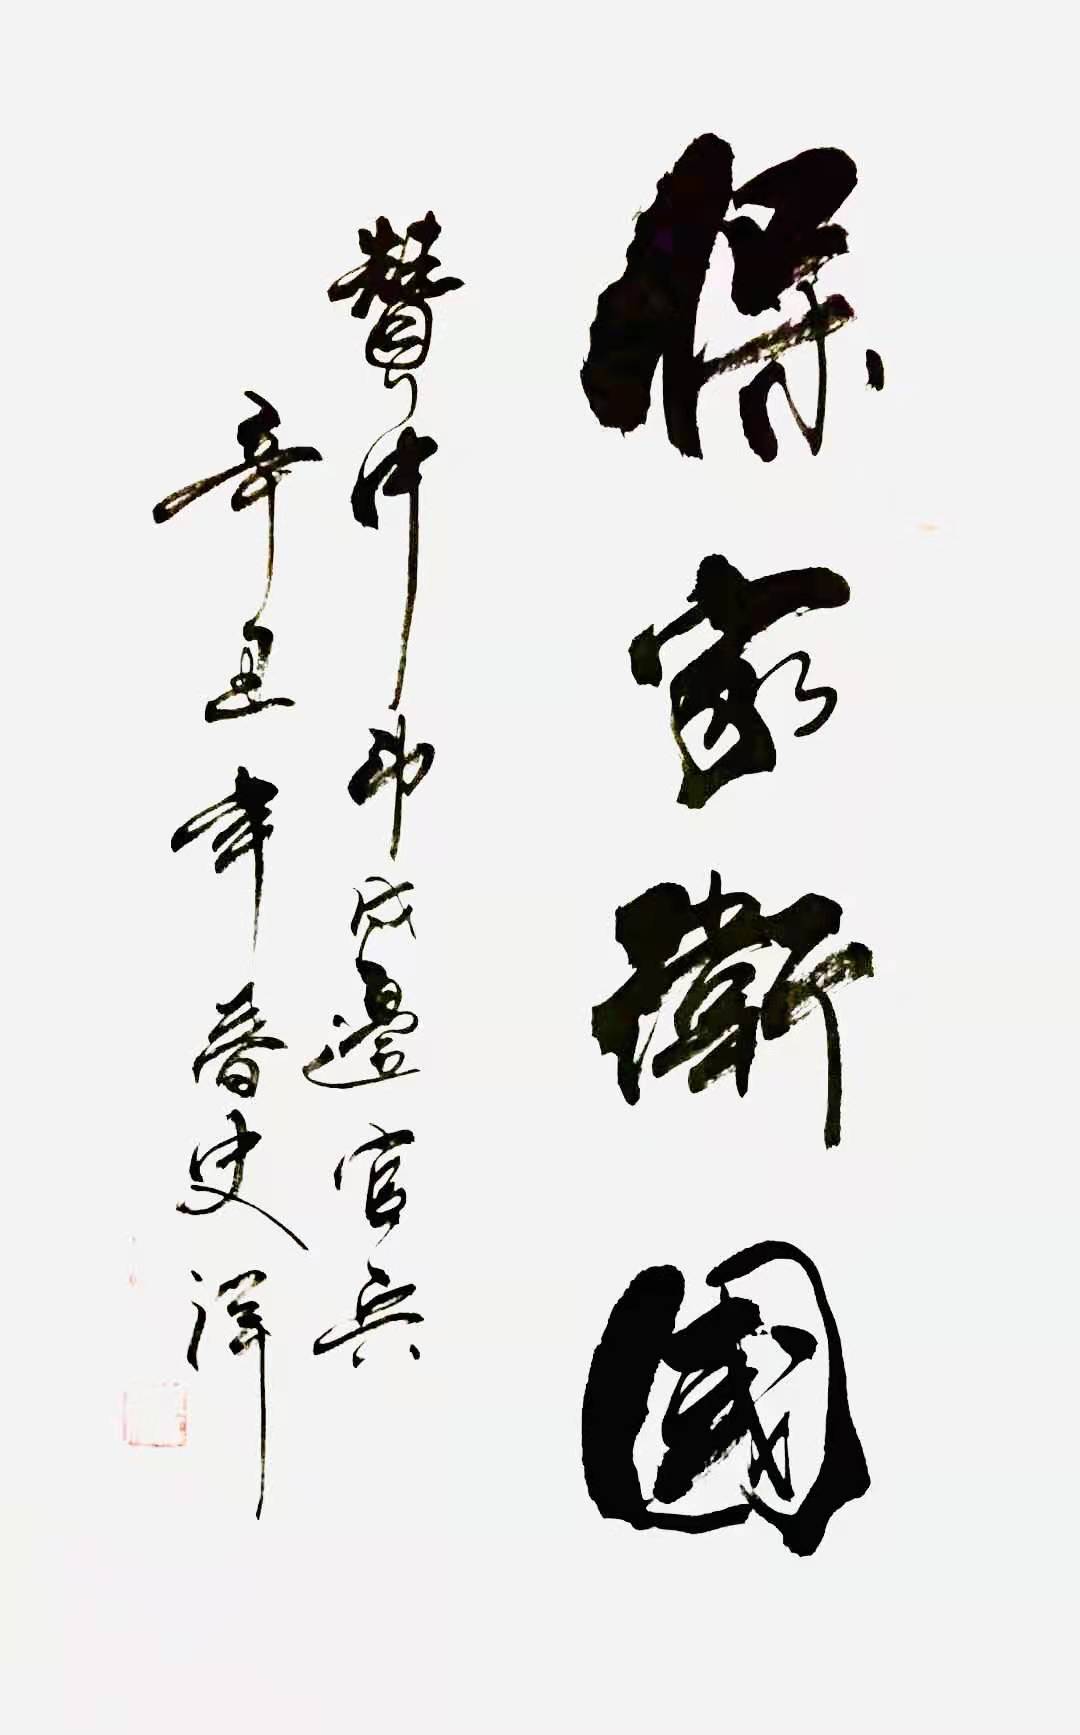 保家衛國
贊中印戍邊官兵
辛丑年晉史澤